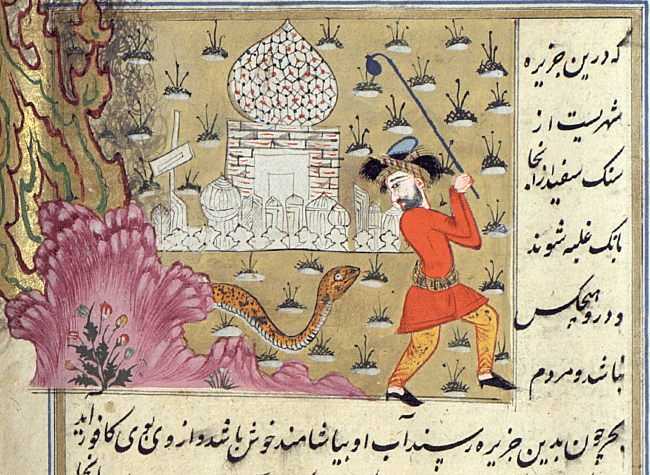 که درین جزیره
شهریست از
سنک سفید از انجا
بانک غلبه شنوند
و در و هیچکس
نباشد و مردم
بحر چون بدین جزیره رسند آب او بیاشامند خوش باشد و از وی بوی کافور آید